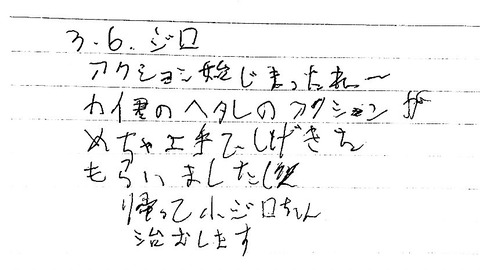 3.6.ジロ
アクション始じまったねー
カイ君のヘタレのアクションが
めちゃ上手でしげきを
もらいました(笑
帰って小ジロちゃん
治むします